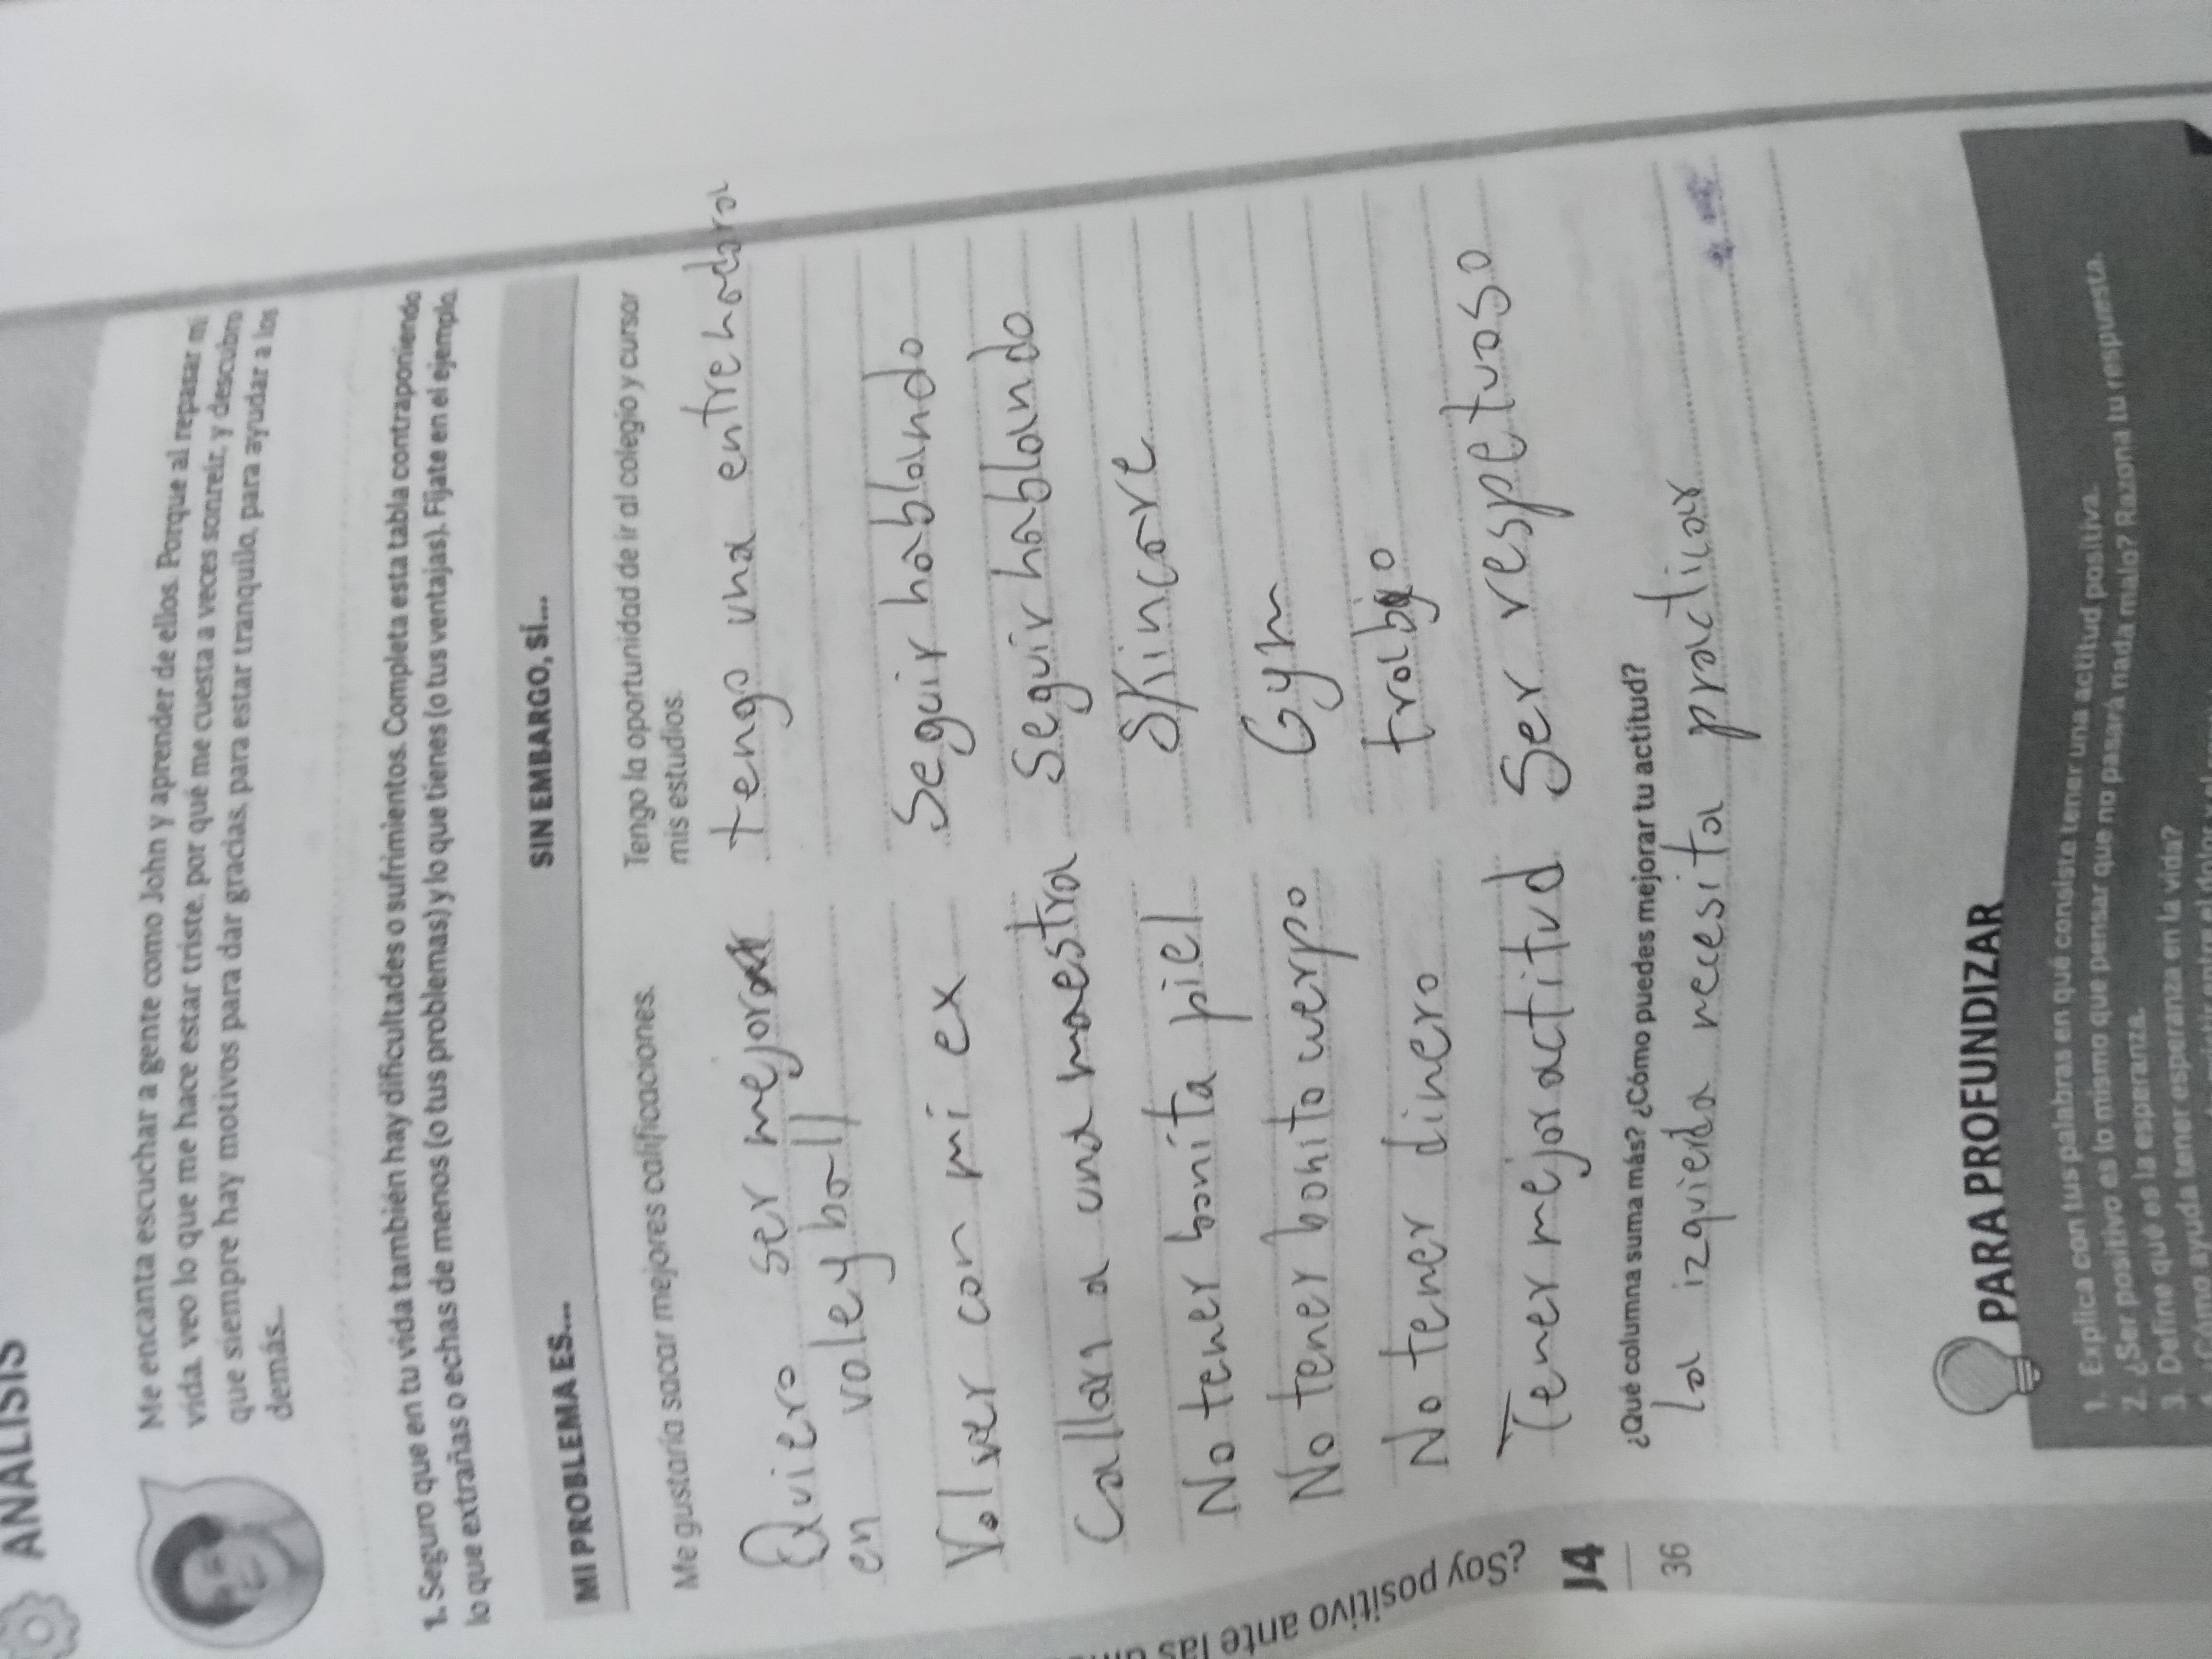 ANÁLISIS
Me encanta escuchar a gente como John y aprender de ellos. Porque al repasar mi
vida, veo lo que me hace estar triste, por qué me cuesta a veces sonreír, y descubro
que siempre hay motivos para dar gracias, para estar tranquilo, para ayudar a los
demás...
1. Seguro que en tu vida también hay dificultades o sufrimientos. Completa esta tabla contraponiendo
lo que extrañas o echas de menos (o tus problemas) y lo que tienes (o tus ventajas). Fíjate en el ejemplo.
MI PROBLEMA ES...
SIN EMBARGO, SÍ...
Me gustaría sacar mejores calificaciones.
Tengo la oportunidad de ir al colegio y cursar
mis estudios.
Quiero ser mejor
en voleyball
tengo una entrenadora
Volver con mi ex
Seguir hablando
Callar a una maestra
Seguir hablando
No tener bonita piel
Skincare
No tener bonito cuerpo
Gym
No tener dinero
trabjo
Tener mejor actitud
Ser respetuoso
¿Qué columna suma más? ¿Cómo puedes mejorar tu actitud?
la izquierda necesita practicar
PARA PROFUNDIZAR
1. Explica con tus palabras en qué consiste tener una actitud positiva.
2. ¿Ser positivo es lo mismo que pensar que no pasará nada malo? Razona tu respuesta.
3. Define qué es la esperanza.
¿Cómo ayuda tener esperanza en la vida?
¿Soy positivo ante las
J4
36